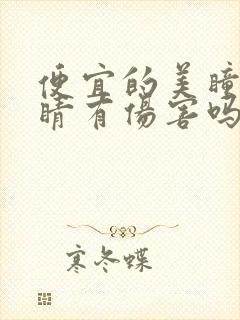 便宜的美瞳
睛有傷害吗
寒冬蝶